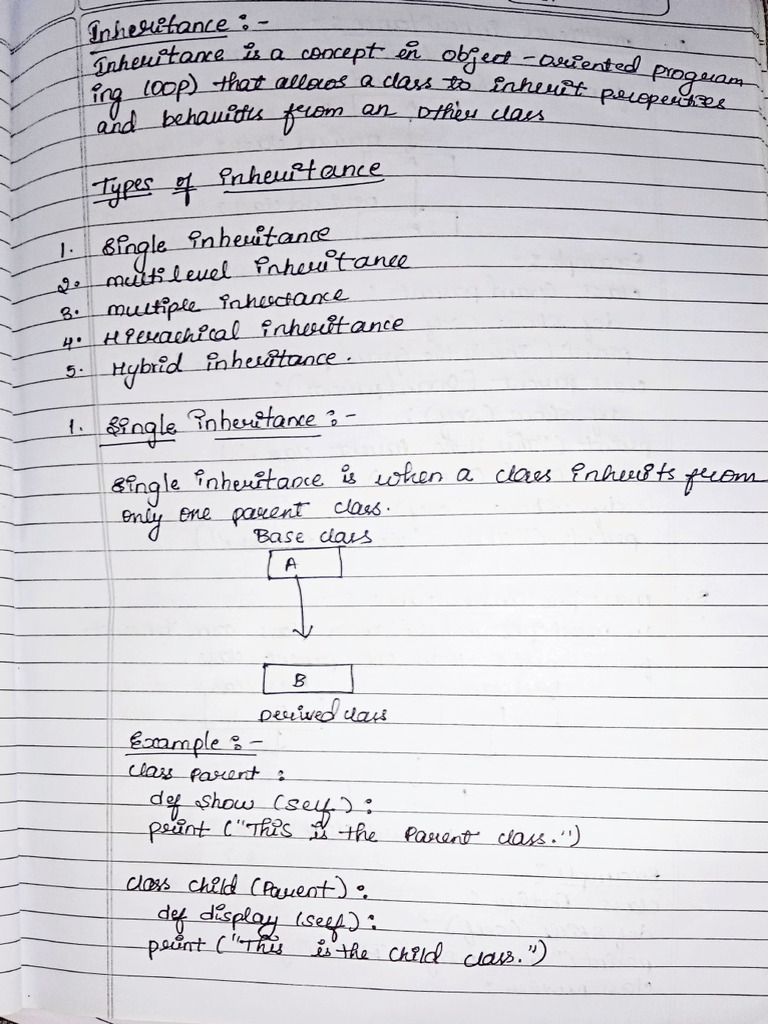 Inheritance :-
Inheritance is a concept in object-oriented program
ing (OOP) that allows a class to inherit properties
and behaviours from an other class
Types of inheritance
1. Single inheritance
2. multilevel inheritance
3. multiple inheritance
4. Hierachical inheritance
5. Hybrid inheritance.
1. Single inheritance :-
Single inheritance is when a class inherits from
only one parent class.
Base class
A
B
Derived class
Example :-
class Parent :
def show (self) :
print ("This is the Parent class.")
class child (Parent) :
def display (self) :
print ("This is the child class.")